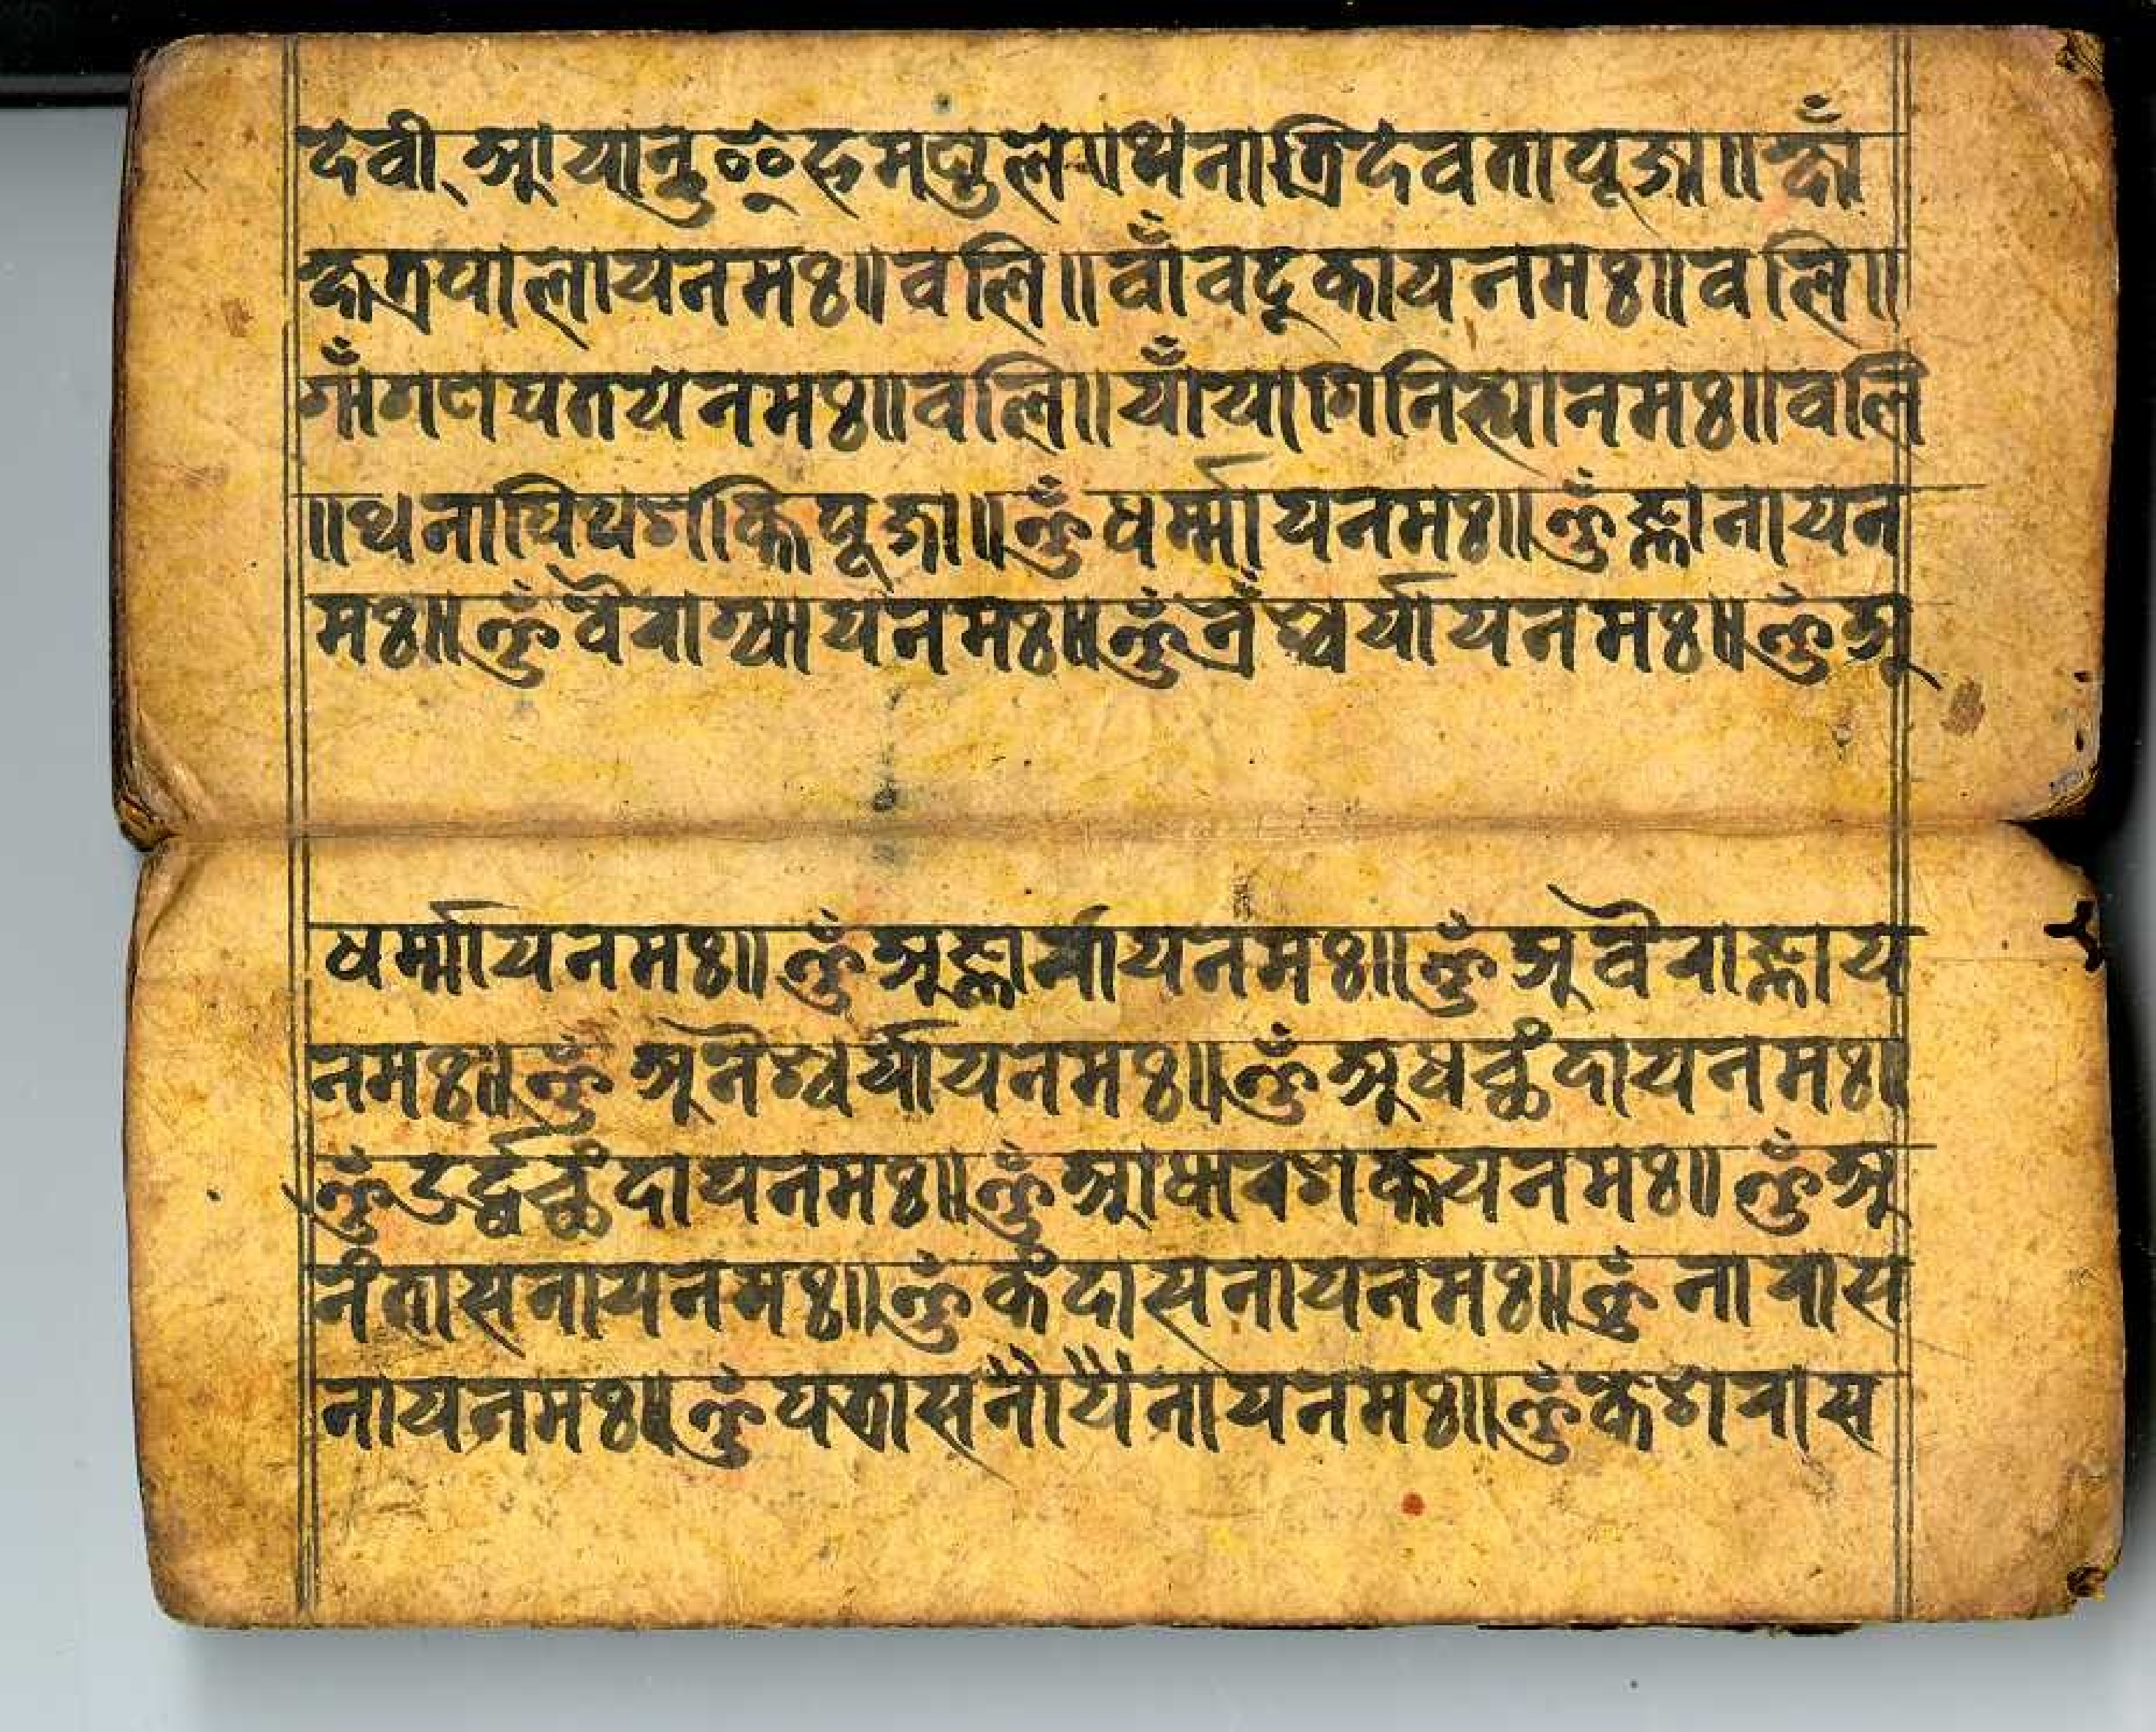 देवी आयानु इह मण्डले ॥ थनात्रिदेवतापूजा ॥ क्षाँ
क्षत्रपालायनमः ॥ वलि ॥ वाँवटूकायनमः ॥ वलि ॥
गाँगणपतयनमः ॥ वलि ॥ याँयागिनिस्यानमः ॥ वलि
॥ थनापिथशक्तिपूजा ॥ ॐधर्म्मायनमः ॥ ॐज्ञानायन
मः ॥ ॐवैराग्यायनमः ॥ ॐऐश्वर्यायनमः ॥ ॐअ
धर्म्मायनमः ॥ ॐअज्ञानायनमः ॥ ॐअवैराज्ञाय
नमः ॥ ॐ अनैश्वर्यायनमः ॥ ॐअधच्छंदायनमः ॥
ॐउर्द्धच्छंदायनमः ॥ ॐआधारशक्तयनमः ॥ ॐअ
नंतासनायनमः ॥ ॐकंदासनायनमः ॥ ॐ नारास
नायनमः ॥ ॐपत्रासनायनमः ॥ ॐकेशरास